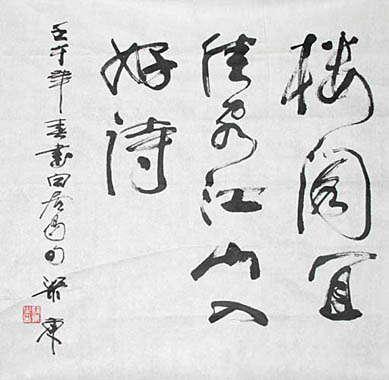 楼阁宜
佳客江山入
好诗
壬午年春書田居句梁東